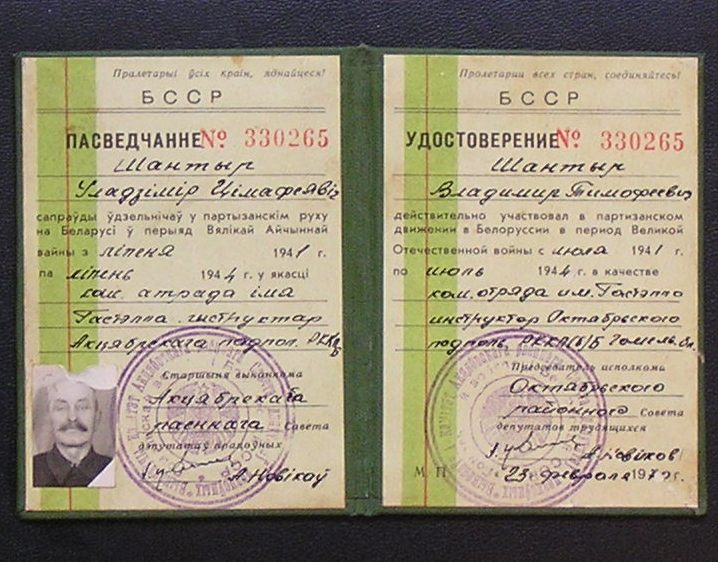 Пралетарыі ўсіх краін, яднайцеся!
БССР
ПАСВЕДЧАННЕ № 330265
Шантыр
Уладзімір Цімафеявіч
сапраўды ўдзельнічаў у партызанскім руху
на Беларусі ў перыяд Вялікай Айчыннай
вайны з ліпеня 1941 г.
па ліпень 1944 г. у якасці
атрада імя
Гастэла інструктар
Акцябрскага подпол. РККПБ
Старшыня выканкома
Акцябрскага
раённага Савета
дэпутатаў працоўных
А. Новікаў
Пролетарии всех стран, соединяйтесь!
БССР
УДОСТОВЕРЕНИЕ № 330265
Шантыр
Владимир Тимофеевич
действительно участвовал в партизанском
движении в Белоруссии в период Великой
Отечественной войны с июля 1941 г.
по июль 1944 г. в качестве
ком. отряда им. Гастелло
инструктор Октябрьского
подполь. РККП(б)Б Гомель. Ол.
Председатель исполкома
Октябрьского
районного Совета
депутатов трудящихся
А. Новиков
М П 23 февраля 197 г.